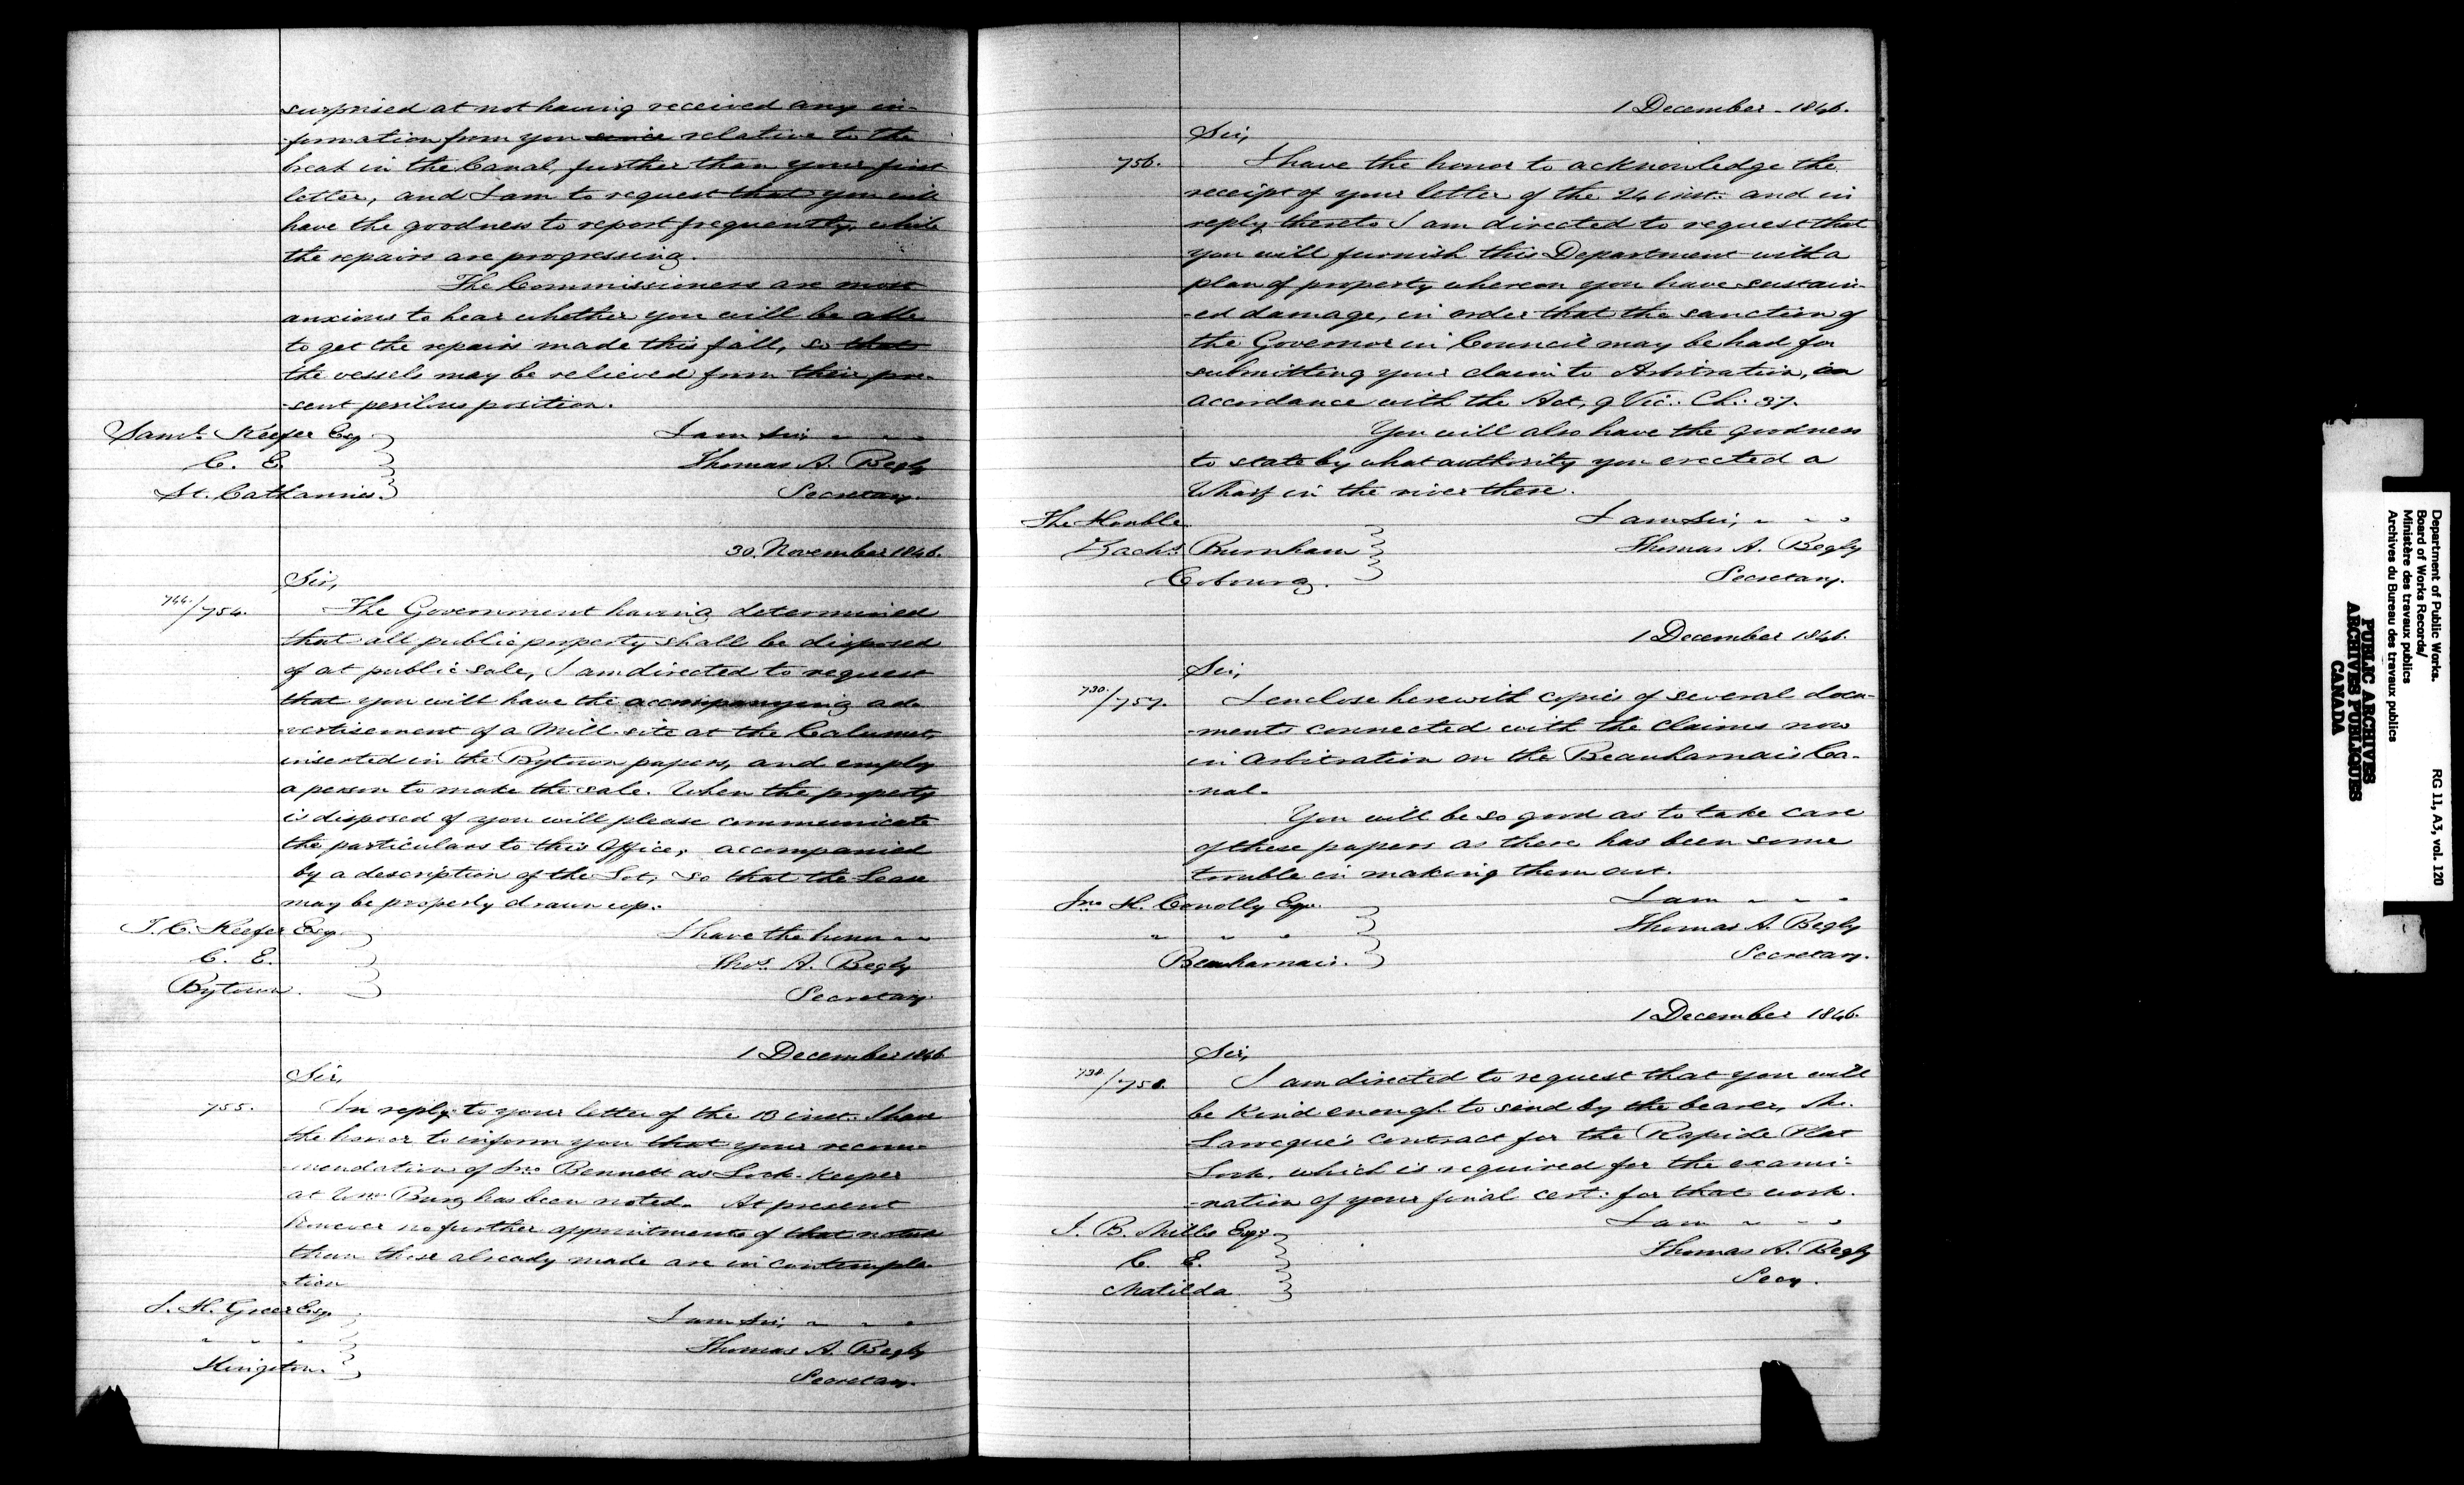 surprised at not having received any in-
-formation from you since relative to the
break in the Canal, further than your first
letter, and I am to request that you will
have the goodness to report frequently, while
the repairs are progressing.
The Commissioners are most
anxious to hear whether you will be able
to get the repairs made this fall, so that
the vessels may be relieved from their pre-
-sent perilous position.
Saml. Keefer Esq I am Sir
C. E. Thomas A. Begly
St. Catharines. Secretary.
30. November 1846.
Sir,
744./754. The Government having determined
that all public property shall be disposed
of at public sale, I am directed to request
that you will have the accompanying ad-
-vertisement of a Mill site at the Calumet,
inserted in the Bytown papers, and employ
a person to make the sale. When the property
is disposed of you will please communicate
the particulars to this Office, accompanied
by a description of the Lot, so that the Lease
may be properly drawn up.
T. C. Keefer Esq. I have the honor
C. E. Thos. A. Begly
Bytown. Secretary
1 December 1846
Sir,
755. In reply to your letter of the 13 inst. I have
the honor to inform you that your recom-
-mendation of Jno Bennett as Lock-Keeper
at Wmsburg has been noted. At present
however no further appointments of that nature
than those already made are in contempla-
-tion
J. H. Greer Esq. I am Sir,
" " "  Thomas A. Begly
Kingston. Secretary.
1 December - 1846.
Sir,
756. I have the honor to acknowledge the
receipt of your letter of the 24 inst: and in
reply thereto I am directed to request that
you will furnish this Department with a
plan of property whereon you have sustain-
-ed damage, in order that the sanction of
the Governor in Council may be had for
submitting your claim to Arbitration, in
accordance with the Act, 9 Vic: Ch: 37.
You will also have the goodness
to state by what authority you erected a
Wharf in the river there.
The Honble I am Sir,
Zachs. Burnham Thomas A. Begly
Cobourg. Secretary.
1 December 1846.
Sir,
730./757. I enclose herewith copies of several docu-
-ments connected with the claims now
in Arbitration on the Beauharnais Ca-
-nal.
You will be so good as to take care
of these papers as there has been some
trouble in making them out.
Jno H. Conolly Esqr. I am
" " " Thomas A. Begly
Beauharnais. Secretary.
1 December 1846.
Sir,
738./758. I am directed to request that you will
be kind enough to send by the bearer, Mr.
Larocque's contract for the Rapide Plat
Lock, which is required for the exami-
-nation of your final cert: for that work.
J. B. Mills Esqr I am
C. E. Thomas A. Begly
Matilda Secy.
Department of Public Works. RG 11, A3, vol. 120
Board of Works Records/
Ministère des travaux publics
Archives du Bureau des travaux publics
PUBLIC ARCHIVES
ARCHIVES PUBLIQUES
CANADA